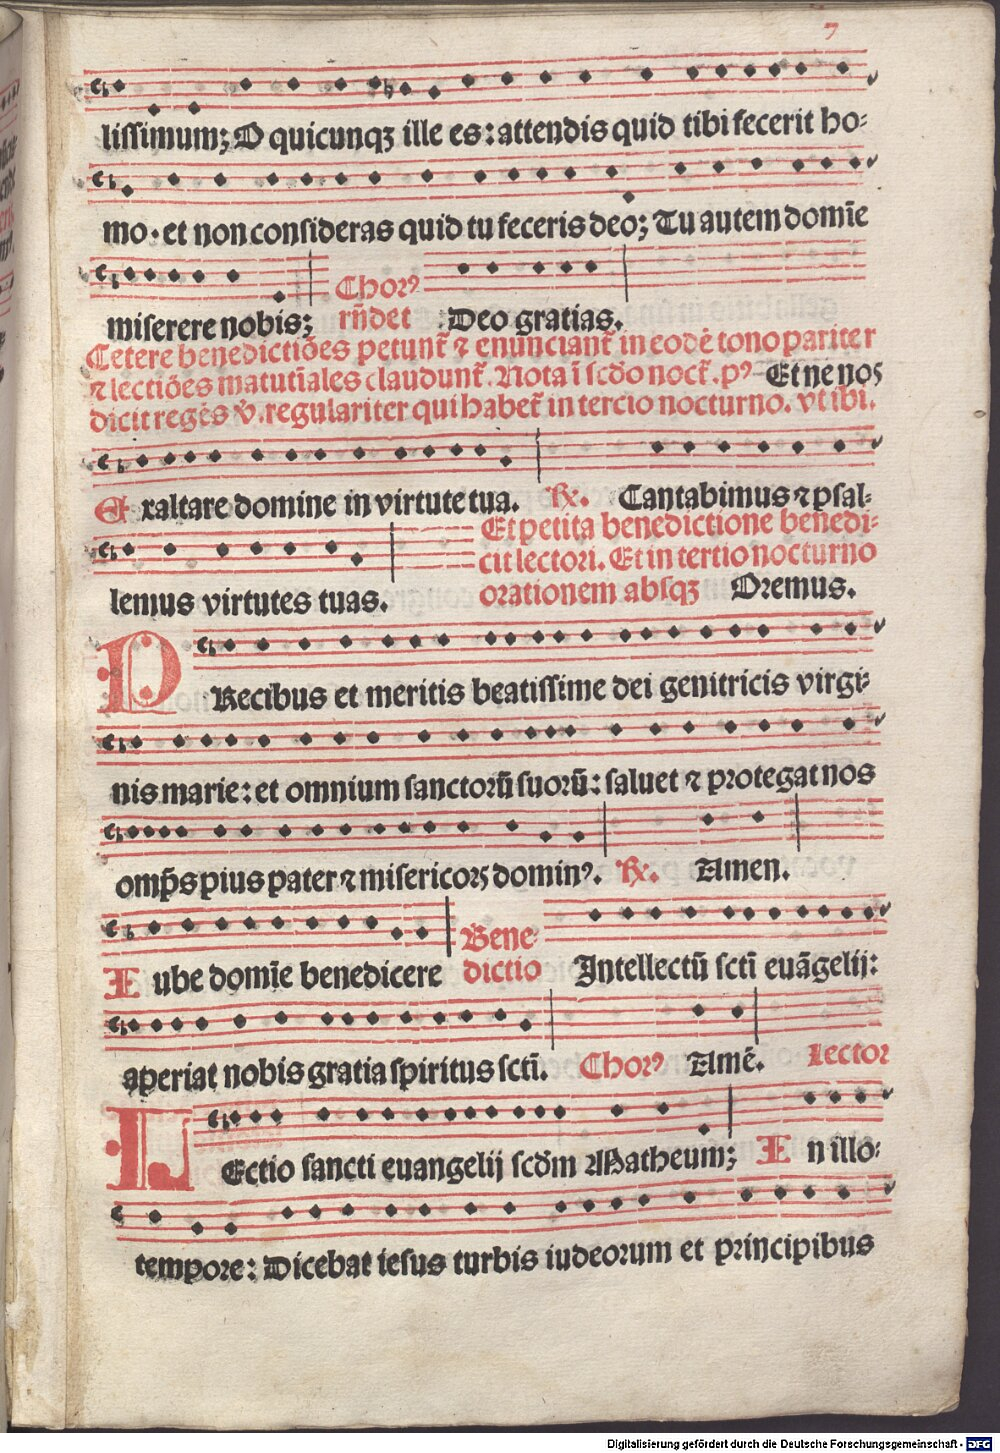 7
lissimum; O quicunqꝫ ille es: attendis quid tibi fecerit ho⸗
mo. et non consideras quid tu feceris deo; Tu autem domīe
miserere nobis; Chorꝰ rn̄det Deo gratias.
Cetere benedictiōes petunt᷑ ⁊ enunciant᷑ in eodē tono pariter
⁊ lectiōes matutīales claudunt᷑. Nota ī scd̄o noct᷑. pꝰ Et ne nos
dicit regēs v̄. regulariter qui habet᷑ in tercio nocturno. vt ibi.
Exaltare domine in virtute tua. ℟. Cantabimus ⁊ psal⸗
lemus virtutes tuas. Et petita benedictione benedi⸗
cit lectori. Et in tertio nocturno
orationem absqꝫ Oremus.
PRecibus et meritis beatissime dei genitricis virgi⸗
nis marie: et omnium sanctorū suorū: saluet ⁊ protegat nos
omp̄s pius pater ⁊ misericors dominꝰ. ℟. Amen.
Iube domīe benedicere Bene⸗
dictio Intellectū sctī euāgelij:
aperiat nobis gratia spiritus sctī. Chorꝰ Amē. Lector
LEctio sancti euangelij scd̄m Matheum; In illo⸗
tempore: Dicebat iesus turbis iudeorum et principibus
Digitalisierung gefördert durch die Deutsche Forschungsgemeinschaft - DFG